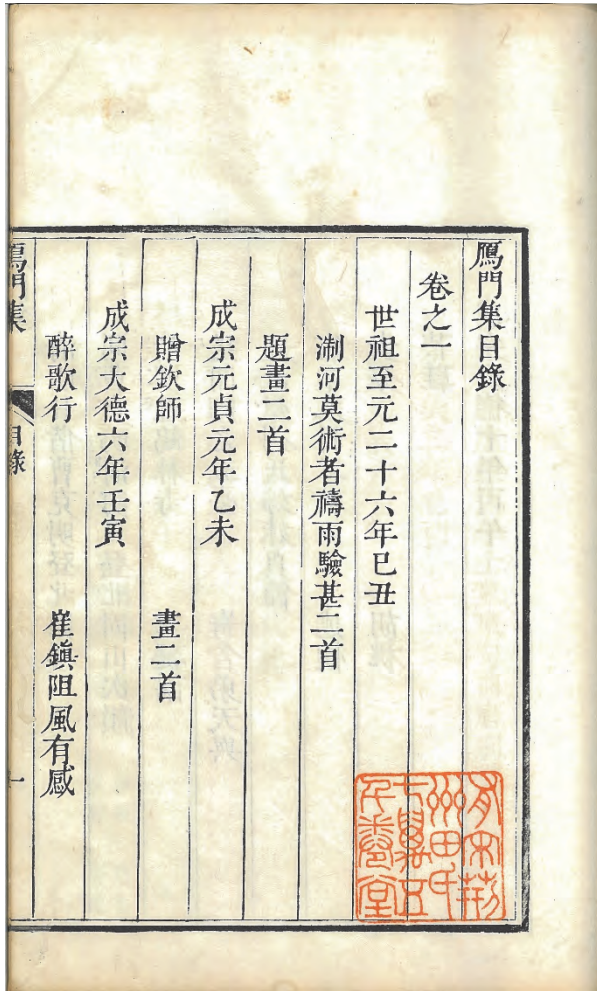 鴈門集目錄
卷之一
世祖至元二十六年巳丑
淛河莫術者禱雨驗甚二首
題畫二首
成宗元貞元年乙未
贈欽師　畫二首
成宗大德六年壬寅
醉歌行　崔鎮阻風有感
鴈門集　目錄　一
有宋荆
州田氏
七萬五
千卷堂